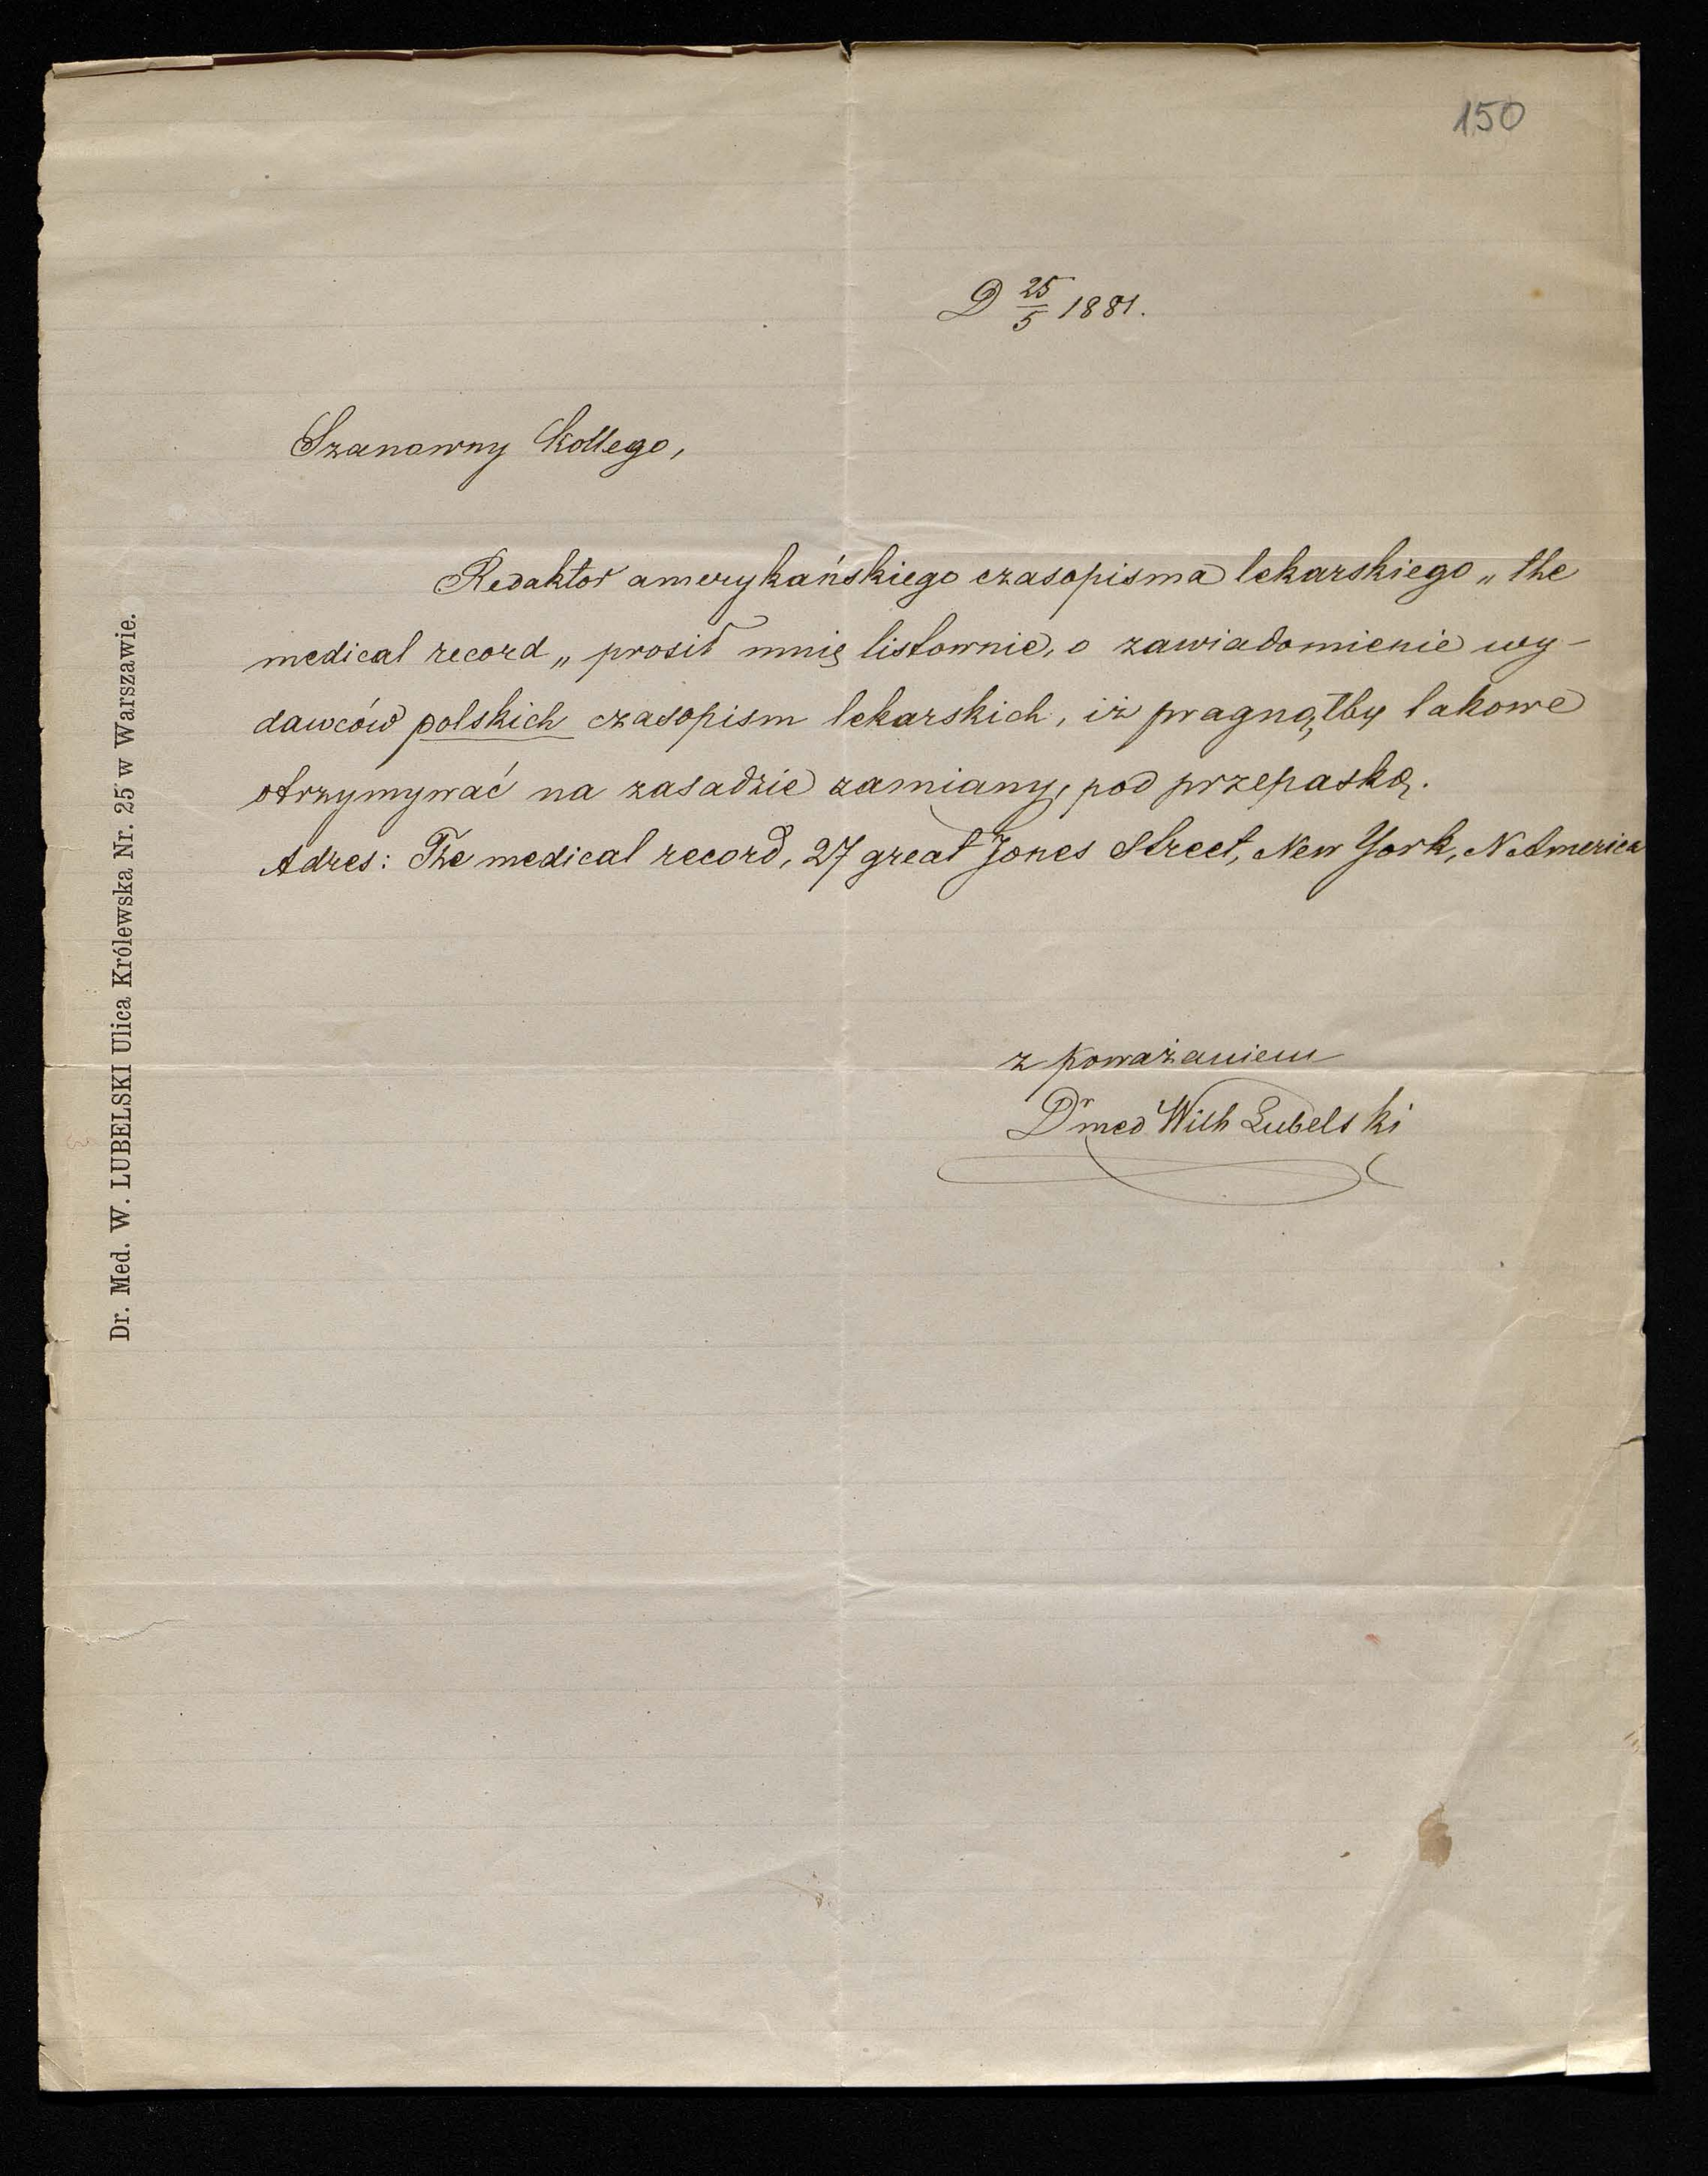 150
D 25/5 1881.
Szanowny Kollego,
Redaktor amerykańskiego czasopisma lekarskiego „the
medical record„ prosił mnię listownie, o zawiadomienie wy-
dawców polskich czasopism lekarskich, iż pragnąłby takowe
otrzymywać na zasadzie zamiany, pod przepaską.
Adres: The medical record, 27 great Jones Street, New York, N. America
z poważaniem
Dr med Wilh Lubelski
Dr. Med. W. LUBELSKI Ulica Królewska Nr. 25 w Warszawie.